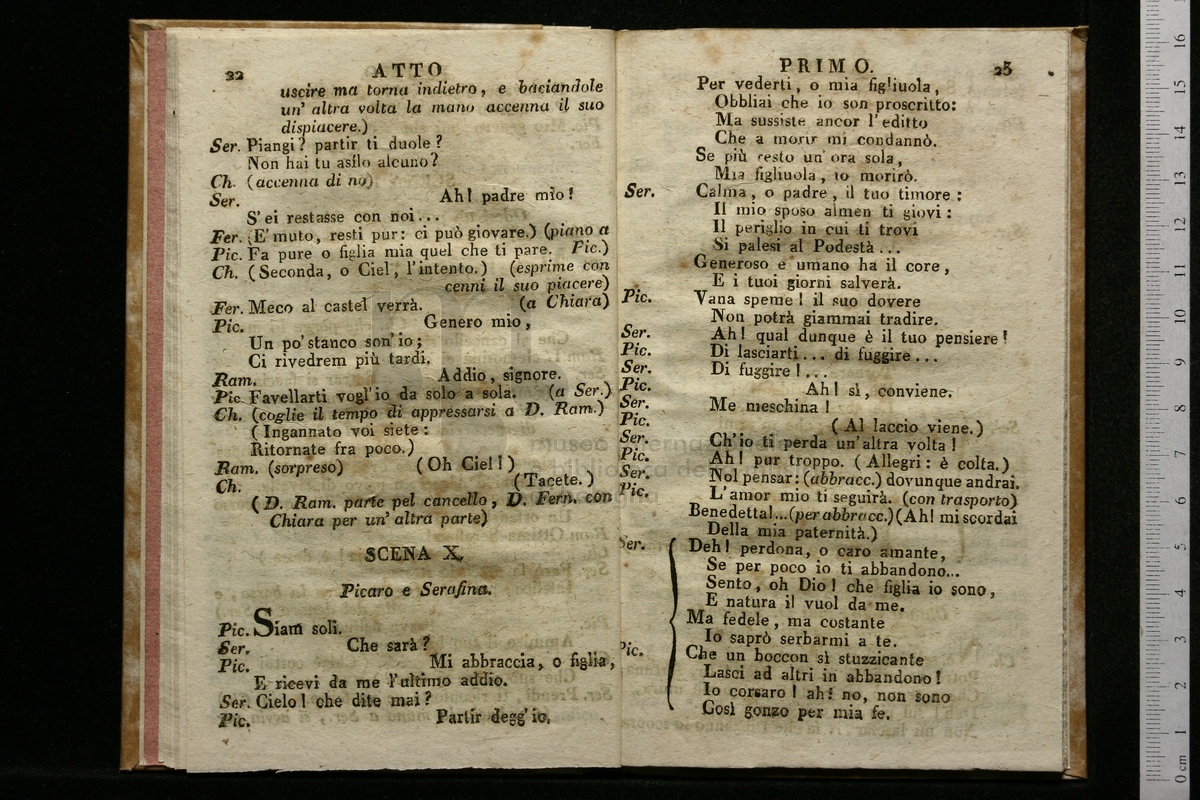 22 ATTO
uscire ma torna indietro, e baciandole
un' altra volta la mano accenna il suo
dispiacere.)
Ser. Piangi? partir ti duole?
Non hai tu asilo alcuno?
Ch. (accenna di no)
Ser. Ah! padre mio!
S' ei restasse con noi...
Fer. (E' muto, resti pur: ci può giovare.) (piano a
Pic. Fa pure o figlia mia quel che ti pare. Pic.)
Ch. (Seconda, o Ciel, l'intento.) (esprime con
cenni il suo piacere)
Fer. Meco al castel verrà. (a Chiara)
Pic. Genero mio,
Un po' stanco son' io;
Ci rivedrem più tardi.
Ram. Addio, signore.
Pic. Favellarti vogl' io da solo a sola. (a Ser.)
Ch. (coglie il tempo di appressarsi a D. Ram.)
(Ingannato voi siete:
Ritornate fra poco.)
Ram. (sorpreso) (Oh Ciel!)
Ch. (Tacete.)
(D. Ram. parte pel cancello, D. Fern. con
Chiara per un' altra parte)
SCENA X.
Picaro e Serafina.
Pic. Siam soli.
Ser. Che sarà?
Pic. Mi abbraccia, o figlia,
E ricevi da me l'ultimo addio.
Ser. Cielo! che dite mai?
Pic. Partir degg' io.
PRIMO. 23
Per vederti, o mia figliuola,
Obbliai che io son proscritto:
Ma sussiste ancor l'editto
Che a morir mi condannò.
Se più resto un' ora sola,
Mia figliuola, io morirò.
Ser. Calma, o padre, il tuo timore:
Il mio sposo almen ti giovi:
Il periglio in cui ti trovi
Si palesi al Podestà...
Generoso e umano ha il core,
E i tuoi giorni salverà.
Pic. Vana speme! il suo dovere
Non potrà giammai tradire.
Ser. Ah! qual dunque è il tuo pensiere?
Pic. Di lasciarti... di fuggire...
Ser. Di fuggire!...
Pic. Ah! sì, conviene.
Ser. Me meschina!
Pic. (Al laccio viene.)
Ser. Ch'io ti perda un'altra volta!
Pic. Ah! pur troppo. (Allegri: è colta.)
Ser. Nol pensar: (abbracc.) dovunque andrai.
Pic. L'amor mio ti seguirà. (con trasporto)
Benedetta!...(per abbracc.) (Ah! mi scordai
Della mia paternità.)
Ser. Deh! perdona, o caro amante,
Se per poco io ti abbandono...
Sento, oh Dio! che figlia io sono,
E natura il vuol da me.
Ma fedele, ma costante
Io saprò serbarmi a te.
Pic. Che un boccon sì stuzzicante
Lasci ad altri in abbandono!
Io corsaro! ah! no, non sono
Così gonzo per mia fe.